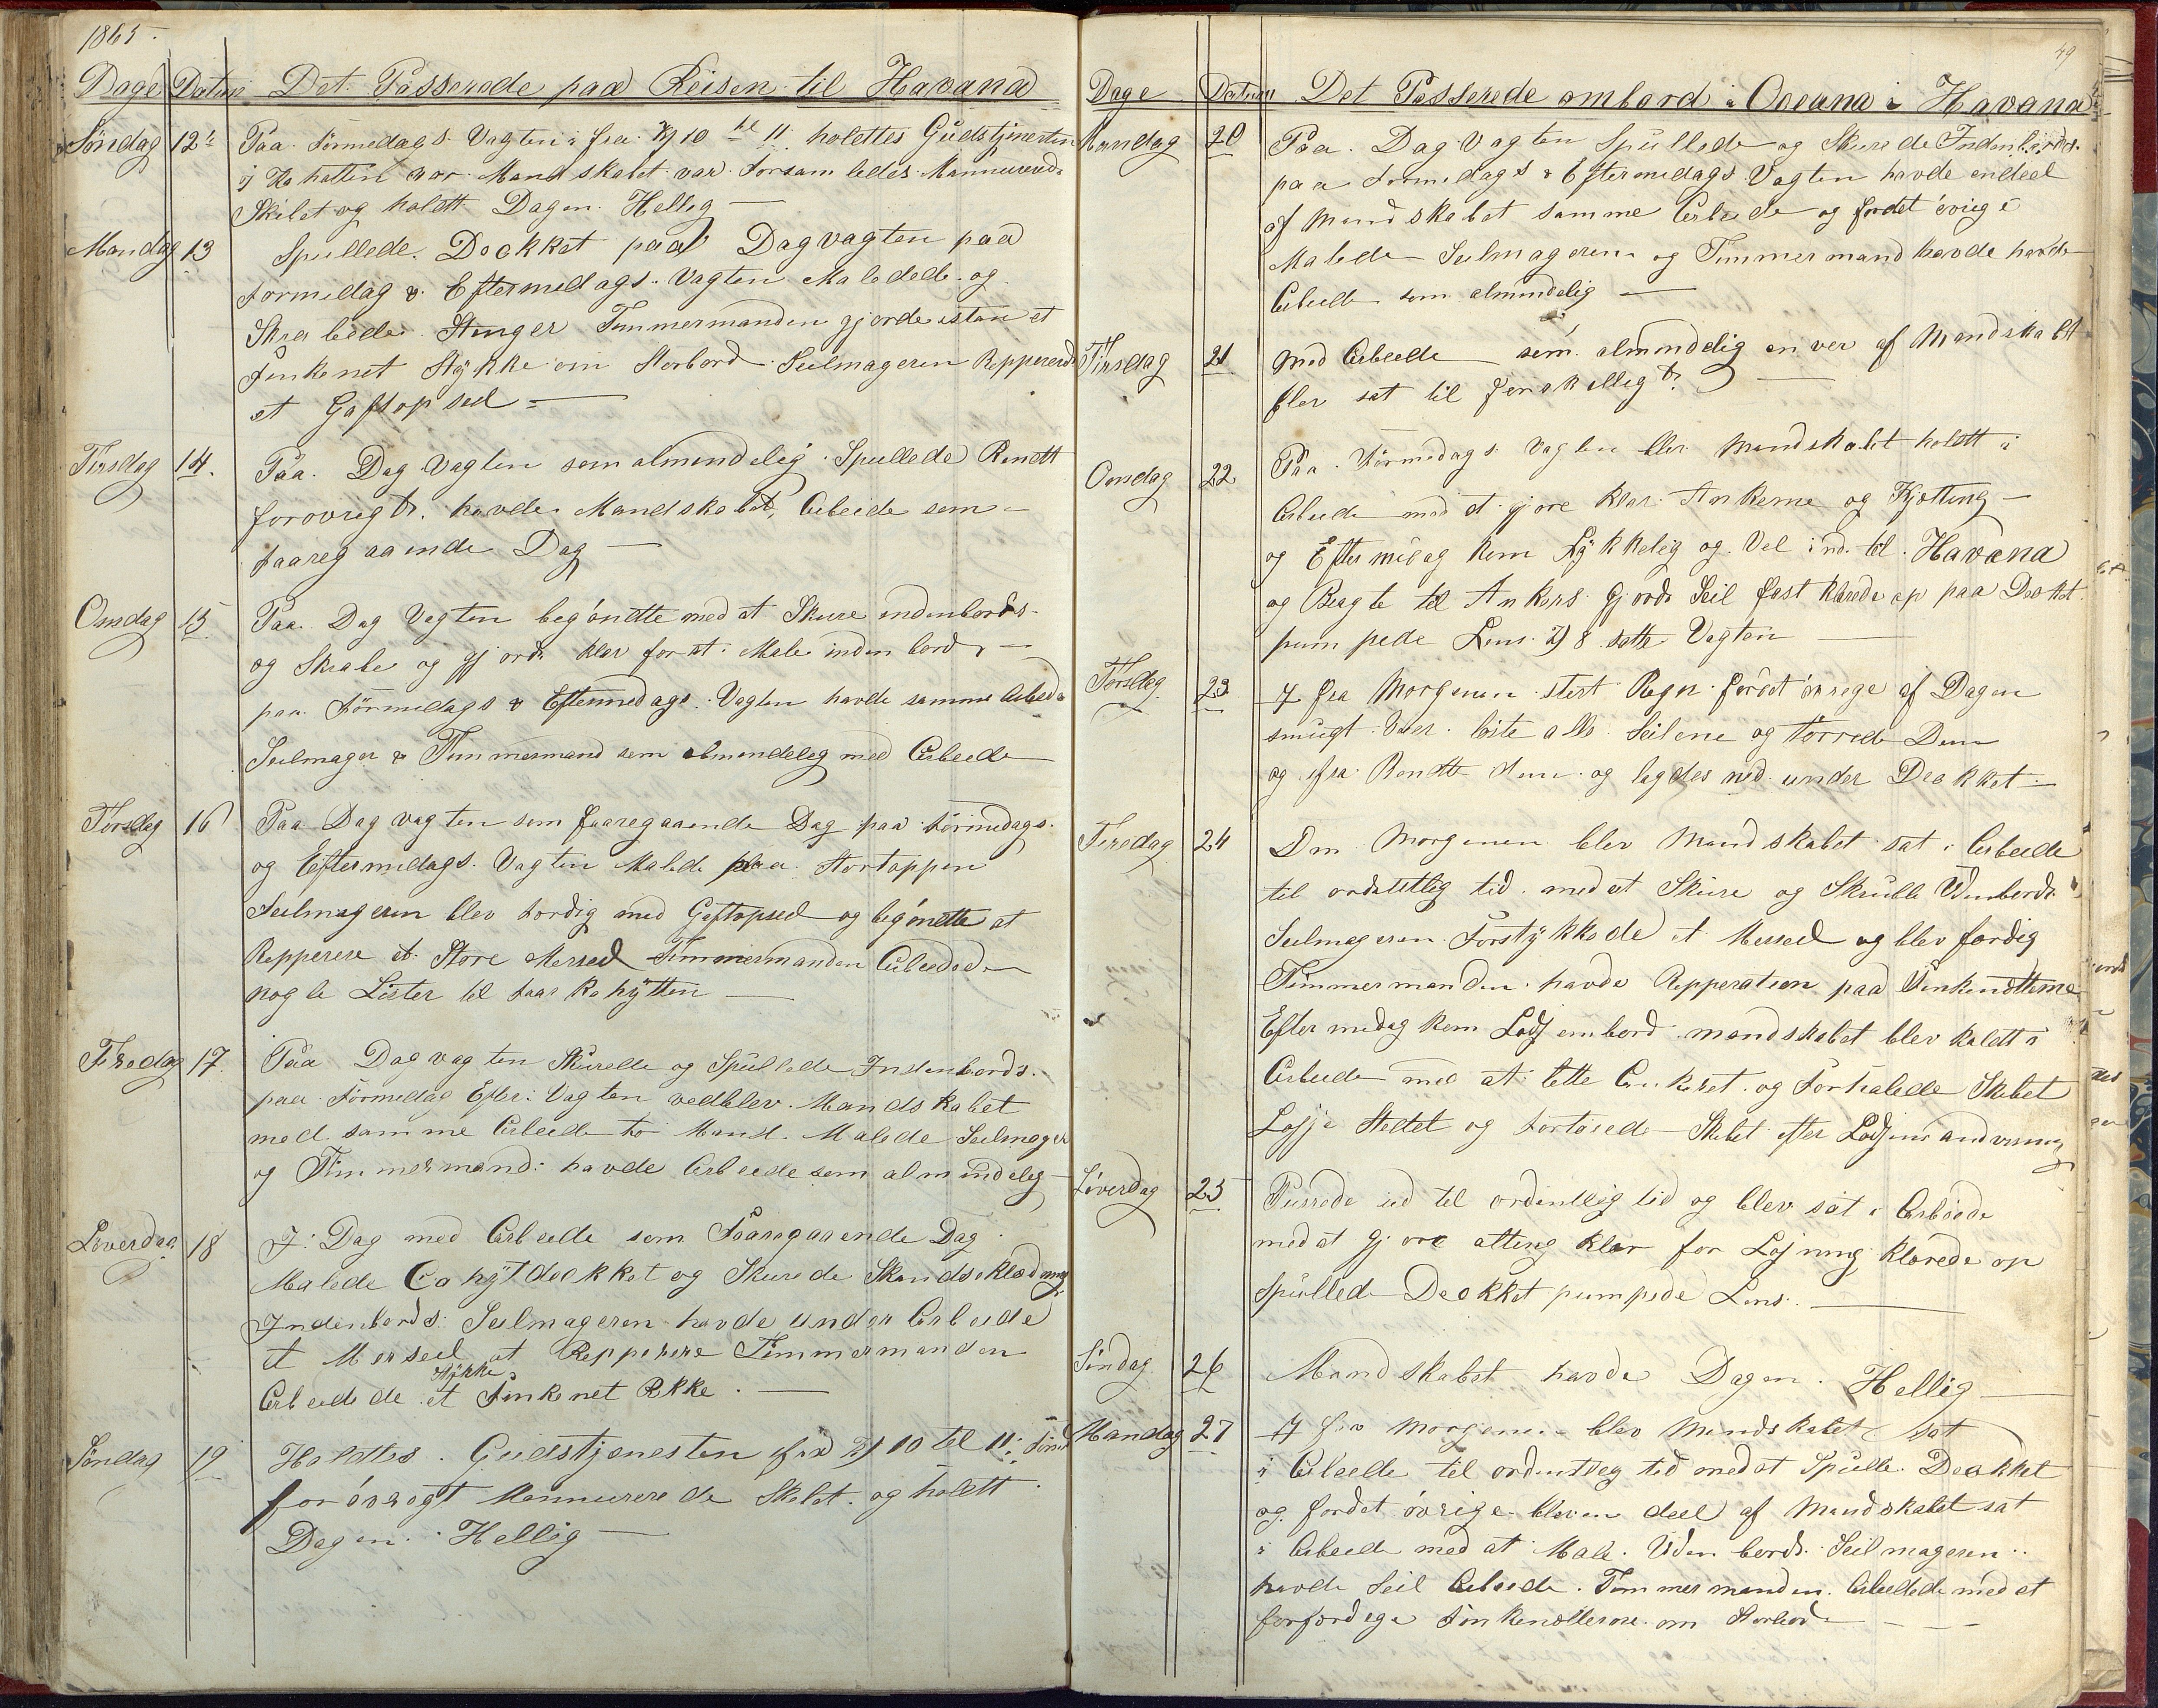 1865
Dage Datum Det Passerede paa Reisen til Havana
Søndag 12te Paa Formedags Vagten fra Kl 10 til 11 holdttes Gudstjenesten
i Kahøtten vor Mandskabet var Forsamledes Mannurerede
Skibet og holdtt Dagen Hellig
Mandag 13 Spullede Dekket paa Dagvagten paa
Formedag & Eftermedags Vagten Malede og
Skrabede Stenger Tømmermanden gjorde istan et
Finkenet Stykke om Storbord Seilmageren Reppererede
et Gaftopseil
Tirsdag 14. Paa Dag Vagten som almendelig Spullede Rendtt
forøvrigt havde Mandskabet Arbeide som
faaregaaende Dag
Onsdag 15 Paa Dag Vagten begøndtte med at Skure indenbords
og Skrabe og gjorde klar for at Male inden bords
paa Formedags & Eftermedags Vagten havde samme Arbede
Seilmager & Tømmermand som almendeleg med Arbeede
Torsdag 16 Paa Dag vagten som faaregaaende Dag paa Formedags
og Eftermedags Vagten Malede paa Stortoppen
Seilmageren blev Fordig med Gaftopseil og begøndtte at
Repperere et Store Merseil Tømmermanden Arbeedede
nogle Lister til faar Kahytten
Fredag 17. Paa Dag vagten Skurede og Spullede Indenbords
paa Formedag Efter Vagten vedblev Mandskabet
med samme Arbeede to Mand Malede Seilmager
og Tømmermand havde Arbeede som almindeleg
Løverdag 18 I Dag med Arbeede som Faaregaaende Dag
Malede Cahytdekket og Skurede Skandseklædning
Indenbords Seilmageren havde under Arbeede
et Merseil at Repperere Tømmermanden
Stykke
Arbeedede et Finkenet Rekke
Søndag 19 Holdtes Gudstjenesten fra Kl 10 til 11
forøvregt Mannurerede Skibet og holdtt
Dagen Hellig
49
Dage Datum Det Passerede ombord i Oceana i Havana
Mandag 20 Paa Dag Vagten Spullede og Skurede Indenbords
paa Formedags & Eftermedags Vagten havde endeel
af Mandskabet samme Arbeede og fordet øvrige
Malede Seilmageren og Tømmermand havde havde
Arbeede som almindelig
Tirsdag 21 Med Arbeede som almindelig en ver af Mandskabet
blev sat til forskelligt
Onsdag 22 Paa Formedags Vagten blev Mandskabet holdtt i
Arbeede med at gjøre klar Ankerne og Kjetting
og Eftermedag kom Lykkelig og Vel ind til Havana
og Bragte til Ankers Gjorde Seil fast klarede op paa Dekket
pumpede Lens Kl 8 satte Vagten
Torsdag 23 I fra Morgenen stert Regn fordet øvrege af Dagen
smugt Veer løste alle Seilene og tørrede Dem
og fra Rendte dem og lagdes ned under Dekket
Fredag 24 Om Morgenen blev Mandskabet sat i Arbeede
til ordentlig tid med at Skure og Skrubbe Udenbords
Seilmageren Forstykkede et Merseil og blev færdig
Tømmermanden havde Repperation paa Finkenetterne
Eftermedag kom Lods ombord mandskabet blev kaldtt i
Arbeede med at lette Ankeret og Forhalede Skibet
Losje Stedet og fortøiede Skibet efter Lodsens andvisning
Løverdag 25 Purrede ud til ordentlig tid og blev sat i Arbeede
med at gjøre alting klar for Losning klarede op
Spullede Dekket pumpede Lens
Søndag 26 Mandskabet havde Dagen Hellig
Mandag 27 I fra Morgenen blev Mandskabet sat
i Arbeede til ordentleg tid med at Spulle Dekket
og fordet øvrige blev en deel af Mandskabet sat
i Arbeede med at Male Uden bords Seilmageren
havde Seil Arbeede Tømmermanden Arbeedede med at
forfærdege Finkenetterne om Storbord